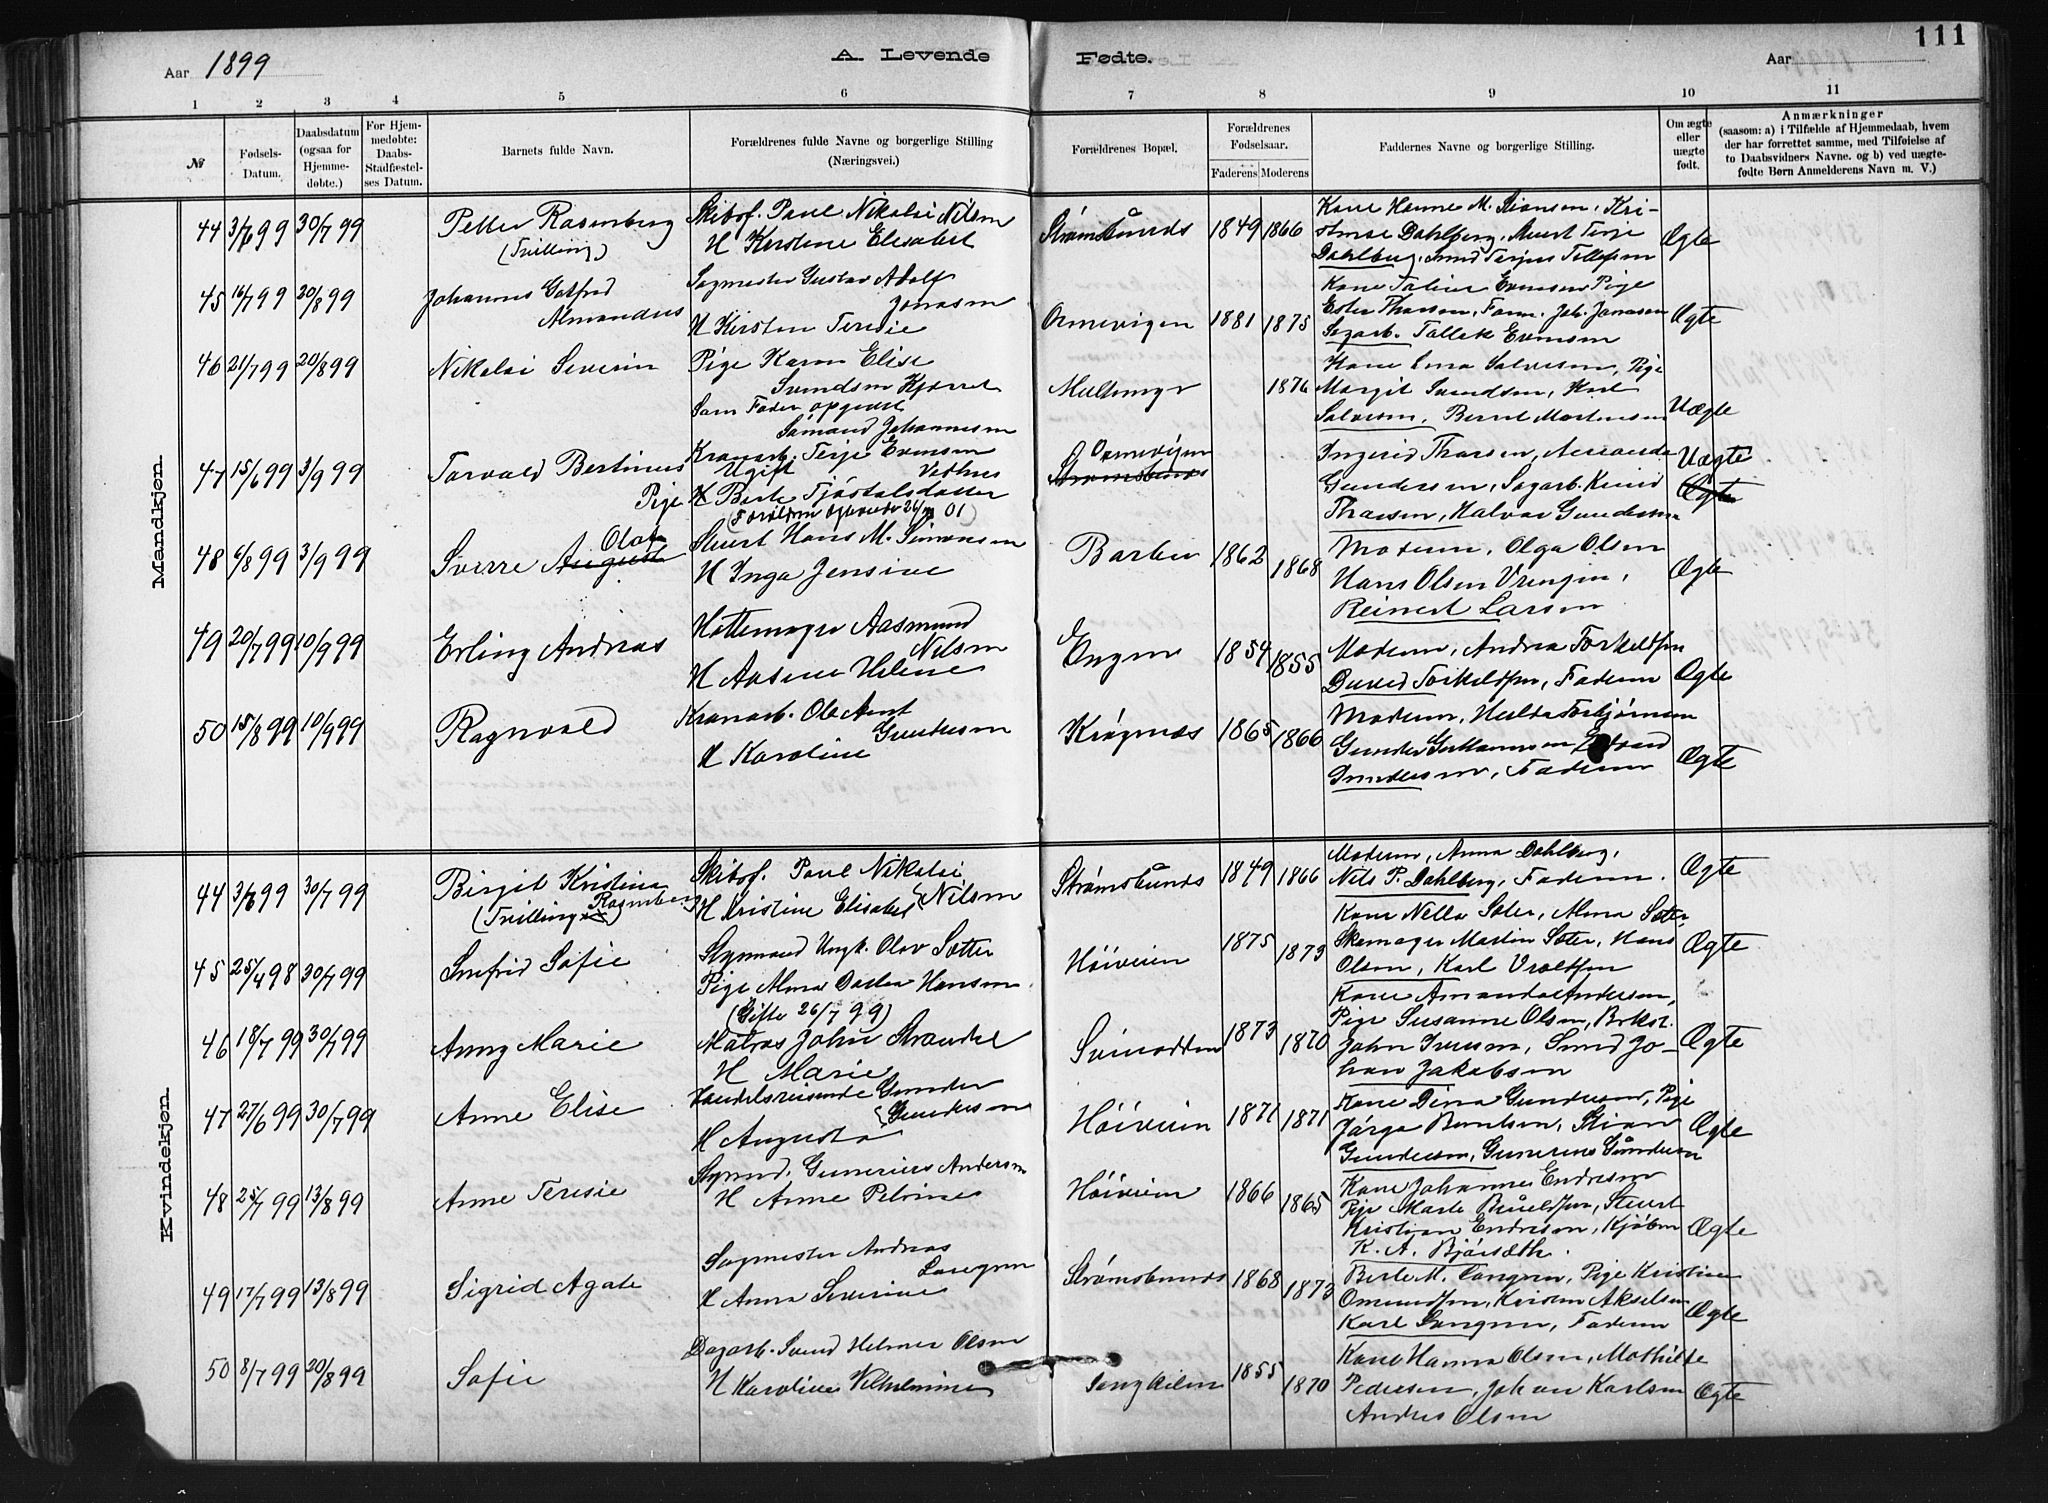 Aar 1899
A. Levende
Fødte.
Aar
111
1 2 3 4 5 6 7 8 9 10 11
№
Fødsels-
Datum.
Daabsdatum
(ogsaa for
Hjemme-
døbte.)
For Hjem-
medøbte:
Daabs-
Stadfæstel-
ses Datum.
Barnets fulde Navn.
Forældrenes fulde Navne og borgerlige Stilling
(Næringsvei.)
Forældrenes Bopæl.
Forældrenes
Fødselsaar.
Faderens Moderens
Faddernes Navne og borgerlige Stilling.
Om ægte
eller
uægte
født.
Anmærkninger
(saasom: a) i Tilfælde af Hjemmedaab, hvem
der har forrettet samme, med Tilføielse af
to Daabsvidners Navne. og b) ved uægte-
fødte Børn Anmelderens Navn m. V.)
Mandkjøn.
44 3/6 99 30/7 99
Petter Rosenberg
(Tvilling)
Skibsf. Poul Nikolai Nilsen
H Kirstine Elisabet
Strømsbunds
1849 1866
Kone Hanne M. Simonsen, Kri-
stense Dahlberg, Stuert Terje
Dahlberg, Smed Terjus Tellefsen
Ægte
45 16/7 99 20/8 99
Johannes Gotfred
Almandus
Sagmester Gustav Adolf
Jonassen
H Kirsten Teresie
Ormevigen
1881 1875
Kone Taline Evensen Pige
Ester Thorsen, Form. Joh. Jonassen
Sagarb. Tallak Evensen
Ægte
46 21/7 99 20/8 99
Nikolai Severin
Pige Karen Elise
Svendsen Kjørret
Som Fader opgivet
Sømand Johannesen
Multemyr
1876
Kone Lina Salvesen, Pige
Margit Svendsen, Karl
Salvesen, Bernt Mortensen
Uægte
47 15/6 99 3/9 99
Torvald Bertinus
Pige
Kranarb. Terje Evensen
Ugift Vethus
H Berte Tjøstolsdatter
Ormevigen
Strømsbunds
Ingerid Thorsen,
Gundersen, Sagarb. Knud
Thorsen, Halvor Gundersen
Uægte
Ægte
48 6/8 99 3/9 99
Olaf
Sverre August
Stuert Hans M. Simonsen
H Inga Jensine
Barbu
1862 1868
Moderen, Olga Olsen
Hans Olsen Vrengen,
Reinert Larsen
Ægte
49 20/7 99 10/9 99
Erling Andreas
Hattemager Aasmund
Nilsen
H Aasine Helene
Engene
1854 1855
Moderen, Andrea Torkeldsen
David Torkeldsen, Faderen
Ægte
50 15/8 99 10/9 99
Ragnvald
Kranarb. Ole Arnt
Gundersen
H Karoline
Krøgenæs
1865 1866
Moderen, Hulda Torbjørnsen
Gunder Hermansen Edvard
Gundersen, Faderen
Ægte
Kvindekjøn.
44 3/6 99 30/7 99
Birgit Kristina
Rosenberg
(Tvilling)
Skibsf. Poul Nikolai
Nilsen
H Kristine Elisabet
Strømsbunds
1849 1866
Moderen, Anna Dahlberg,
Nils P. Dahlberg, Faderen.
Ægte
45 25/4 98 30/7 99
Snefrid Sofie
Styrmand Ungk. Olav Sætter
Pige Alma Dortea Hansen
(Gifte 26/7 99)
Høiveien
1875 1873
Kone Nella Sæter, Alma Sæter,
Skomager Martin Sæter, Hans
Olsen, Karl Vroldsen
Ægte
46 18/7 99 30/7 99
Anny Marie
Matros John Strandal
H Marie
Svinodden
1873 1870
Kone Amanda Andersen,
Pige Susanne Olsen,
John Iversen, Smed Jo-
han Jakobsen
Ægte
47 27/6 99 30/7 99
Anne Elise
Handelsreisende Gunder
Gundersen
H Augusta
Høiveien
1871 1871
Kone Dina Gundersen, Pige
Jørga Berntsen, Stian
Gundersen, Gunerius Gundersen
Ægte
48 25/7 99 13/8 99
Anne Teresie
Styrmd. Gunerius Andersen
H Anne Petrine
Høiveien
1866 1865
Kone Johanne Endresen
Pige Marte Bueldsen, Stuert
Kristian Endresen, Kjøbm
K. A. Bjørsæth.
Ægte
49 17/7 99 13/8 99
Sigrid Agate
Sagmester Andreas
Langen
H Anna Severine
Strømsbunds
1868 1873
Berte M. Langen, Pige Kristine
Omundsen, Kristen Akselsen
Karl Langen, Faderen
Ægte
50 8/7 99 20/8 99
Sofie
Dagarb. Svend Helmer Olsen
H Karoline Vilhelmine
1855 1870
Kone Hanna Olsen, Mathilde
Pedersen, Johan Karlsen
Andreas Olsen
Ægte